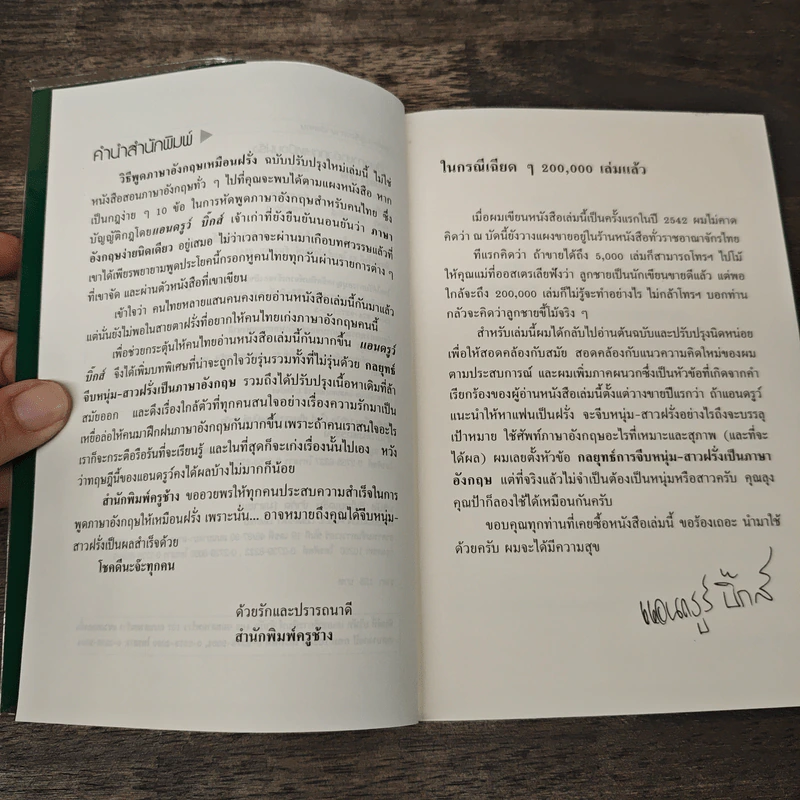 คำนำสำนักพิมพ์
วิธีพูดภาษาอังกฤษเหมือนฝรั่ง ฉบับปรับปรุงใหม่เล่มนี้ ไม่ใช่
หนังสือสอนภาษาอังกฤษทั่ว ๆ ไปที่คุณจะพบได้ตามแผงหนังสือ หาก
เป็นกฎง่าย ๆ 10 ข้อ ในการหัดพูดภาษาอังกฤษสำหรับคนไทย ซึ่ง
บัญญัติกฎโดยแอนดรูว์ บิ๊กส์ เจ้าเก่าที่ยังยืนยันนอนยันว่า ภาษา
อังกฤษง่ายนิดเดียว อยู่เสมอ ไม่ว่าเวลาจะผ่านมาเกือบทศวรรษแล้วที่
เขาได้เพียรพยายามพูดประโยคนี้กรอกหูคนไทยทุกวันผ่านรายการต่าง ๆ
ที่เขาจัด และผ่านตัวหนังสือที่เขาเขียน
เข้าใจว่า คนไทยหลายแสนคนคงเคยอ่านหนังสือเล่มนี้กันมาแล้ว
แต่นั่นยังไม่พอในสายตาฝรั่งที่อยากให้คนไทยเก่งภาษาอังกฤษคนนี้
เพื่อช่วยกระตุ้นให้คนไทยอ่านหนังสือเล่มนี้กันมากขึ้น แอนดรูว์
บิ๊กส์ จึงได้เพิ่มบทพิเศษที่น่าจะถูกใจวัยรุ่นรวมทั้งที่ไม่รุ่นด้วย กลยุทธ์
จีบหนุ่ม-สาวฝรั่งเป็นภาษาอังกฤษ รวมถึงได้ปรับปรุงเนื้อหาเดิมที่ล้า
สมัยออก และดึงเรื่องใกล้ตัวที่ทุกคนสนใจอย่างเรื่องความรักมาเป็น
เหยื่อล่อให้คนมาฝึกฝนภาษาอังกฤษกันมากขึ้น เพราะถ้าคนเราสนใจอะไร
เราก็จะกระตือรือร้นที่จะเรียนรู้ และในที่สุดก็จะเก่งเรื่องนั้นไปเอง หวัง
ว่าทฤษฎีนี้ของแอนดรูว์คงได้ผลบ้างไม่มากก็น้อย
สำนักพิมพ์ครูช้าง ขออวยพรให้ทุกคนประสบความสำเร็จในการ
พูดภาษาอังกฤษให้เหมือนฝรั่ง เพราะนั่น... อาจหมายถึงคุณได้จีบหนุ่ม-
สาวฝรั่งเป็นผลสำเร็จด้วย
โชคดีนะจ๊ะทุกคน
ด้วยรักและปรารถนาดี
สำนักพิมพ์ครูช้าง
ในกรณีเฉียด ๆ 200,000 เล่มแล้ว
เมื่อผมเขียนหนังสือเล่มนี้เป็นครั้งแรกในปี 2542 ผมไม่คาด
คิดว่า ณ บัดนี้ยังวางแผงขายอยู่ในร้านหนังสือทั่วราชอาณาจักรไทย
ทีแรกคิดว่า ถ้าขายได้ถึง 5,000 เล่มก็สามารถโทรฯ ไปโม้
ให้คุณแม่ที่ออสเตรเลียฟังว่า ลูกชายเป็นนักเขียนขายดีแล้ว แต่พอ
ใกล้จะถึง 200,000 เล่มก็ไม่รู้จะทำอย่างไร ไม่กล้าโทรฯ บอกท่าน
กลัวจะคิดว่าลูกชายขี้โม้จริง ๆ
สำหรับเล่มนี้ผมได้กลับไปอ่านต้นฉบับและปรับปรุงนิดหน่อย
เพื่อให้สอดคล้องกับสมัย สอดคล้องกับแนวความคิดใหม่ของผม
ตามประสบการณ์ และผมเพิ่มภาคผนวกซึ่งเป็นหัวข้อที่เกิดจากคำ
เรียกร้องของผู้อ่านหนังสือเล่มนี้ตั้งแต่วางขายปีแรกว่า ถ้าแอนดรูว์
แนะนำให้หาแฟนเป็นฝรั่ง จะจีบหนุ่ม-สาวฝรั่งอย่างไรถึงจะบรรลุ
เป้าหมาย ใช้ศัพท์ภาษาอังกฤษอะไรที่เหมาะและสุภาพ (และที่จะ
ได้ผล) ผมเลยตั้งหัวข้อ กลยุทธ์การจีบหนุ่ม-สาวฝรั่งเป็นภาษา
อังกฤษ แต่ที่จริงแล้วไม่จำเป็นต้องเป็นหนุ่มหรือสาวครับ คุณลุง
คุณป้าก็ลองใช้ได้เหมือนกันครับ
ขอบคุณทุกท่านที่เคยซื้อหนังสือเล่มนี้ ขอร้องเถอะ นำมาใช้
ด้วยครับ ผมจะได้มีความสุข
แอนดรูว์ บิ๊กส์